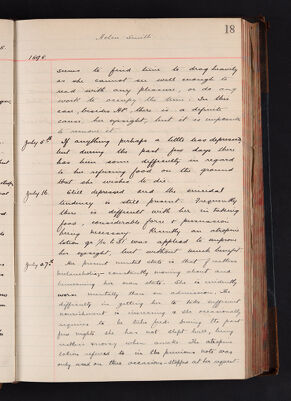 18
Helen Smith
1898.
seems to find time to drag heavily
as she cannot see well enough to
read with any pleasure, or do any
work to occupy the time. In this
case, besides there is a definite
cause, her eyesight, but it is impossible
to remove it.
July 5th If anything perhaps a little less depressed
but during the past few days there
has been some difficulty in regard
to her refusing food on the ground
that she wishes to die.
July 16. Still depressed and the suicidal
tendency is still present. Frequently
there is difficulty with her in taking
food, considerable force & persuasion
being necessary. Recently an atropine
lotion was applied to improve
her eyesight, but without much benefit.
July 27th Her present mental state is that of restless
melancholia, constantly moving about and
bemoaning her own state. She is evidently
worse mentally than on admission. The
difficulty in getting her to take sufficient
nourishment is increasing & she occasionally
requires to be tube fed. During the past
few nights she has not slept well, being
restless & noisy when awake. The atropine
lotion referred to in the previous note was
only used on three occasions - stopped at her request.